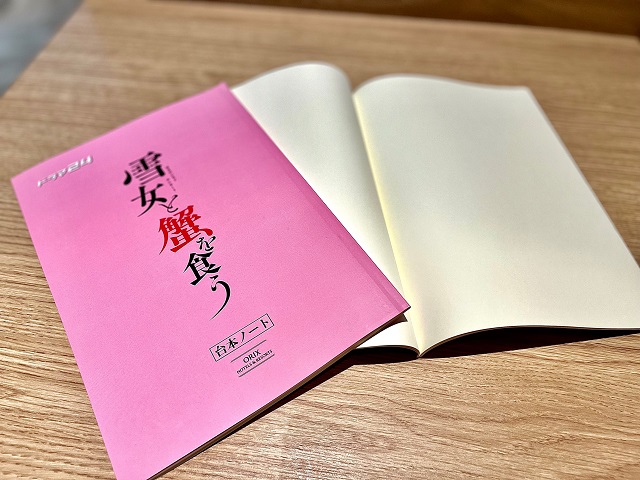 ドラマ24
雪女と蟹を食う
台本ノート
ORIX
HOTELS & RESORTS